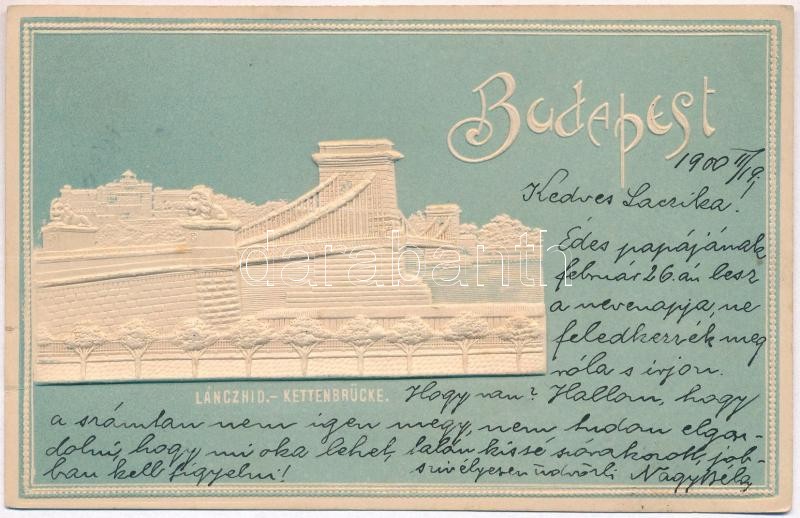 Budapest
1900 II/19.
Kedves Laczika!
Édes papájának
február 26.án lesz
a nevenapja, ne
feledkezzék meg
róla s irjon.
darabanth
LÁNCZHID.- KETTENBRÜCKE.
Hogy van? Hallom, hogy
a számtan nem igen megy, nem tudom elgon-
dolni, hogy mi oka lehet, talán kissé szórakozott, job-
ban kell figyelni!
szivélyesen üdvözli Nagy Béla